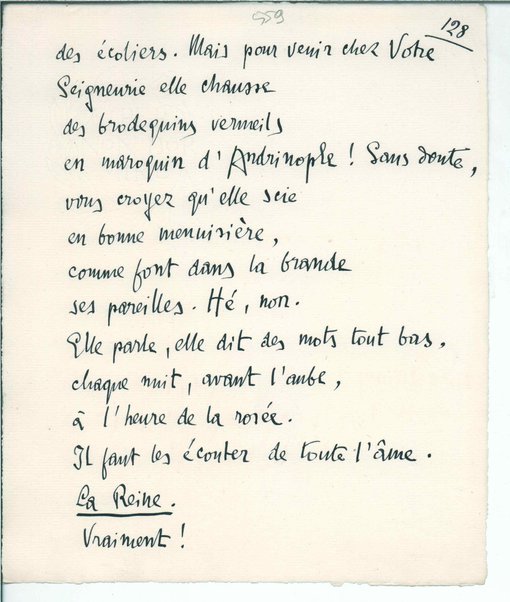 559
128
des écoliers. Mais pour venir chez Votre
Seigneurie elle chausse
des brodequins vermeils
en maroquin d'Andrinople ! Sans doute,
vous croyez qu'elle scie
en bonne menuisière,
comme font dans la brande
ses pareilles. Hé, non.
Elle parle, elle dit des mots tout bas,
chaque nuit, avant l'aube,
à l'heure de la rosée.
Il faut les écouter de toute l'âme.
La Reine.
Vraiment !